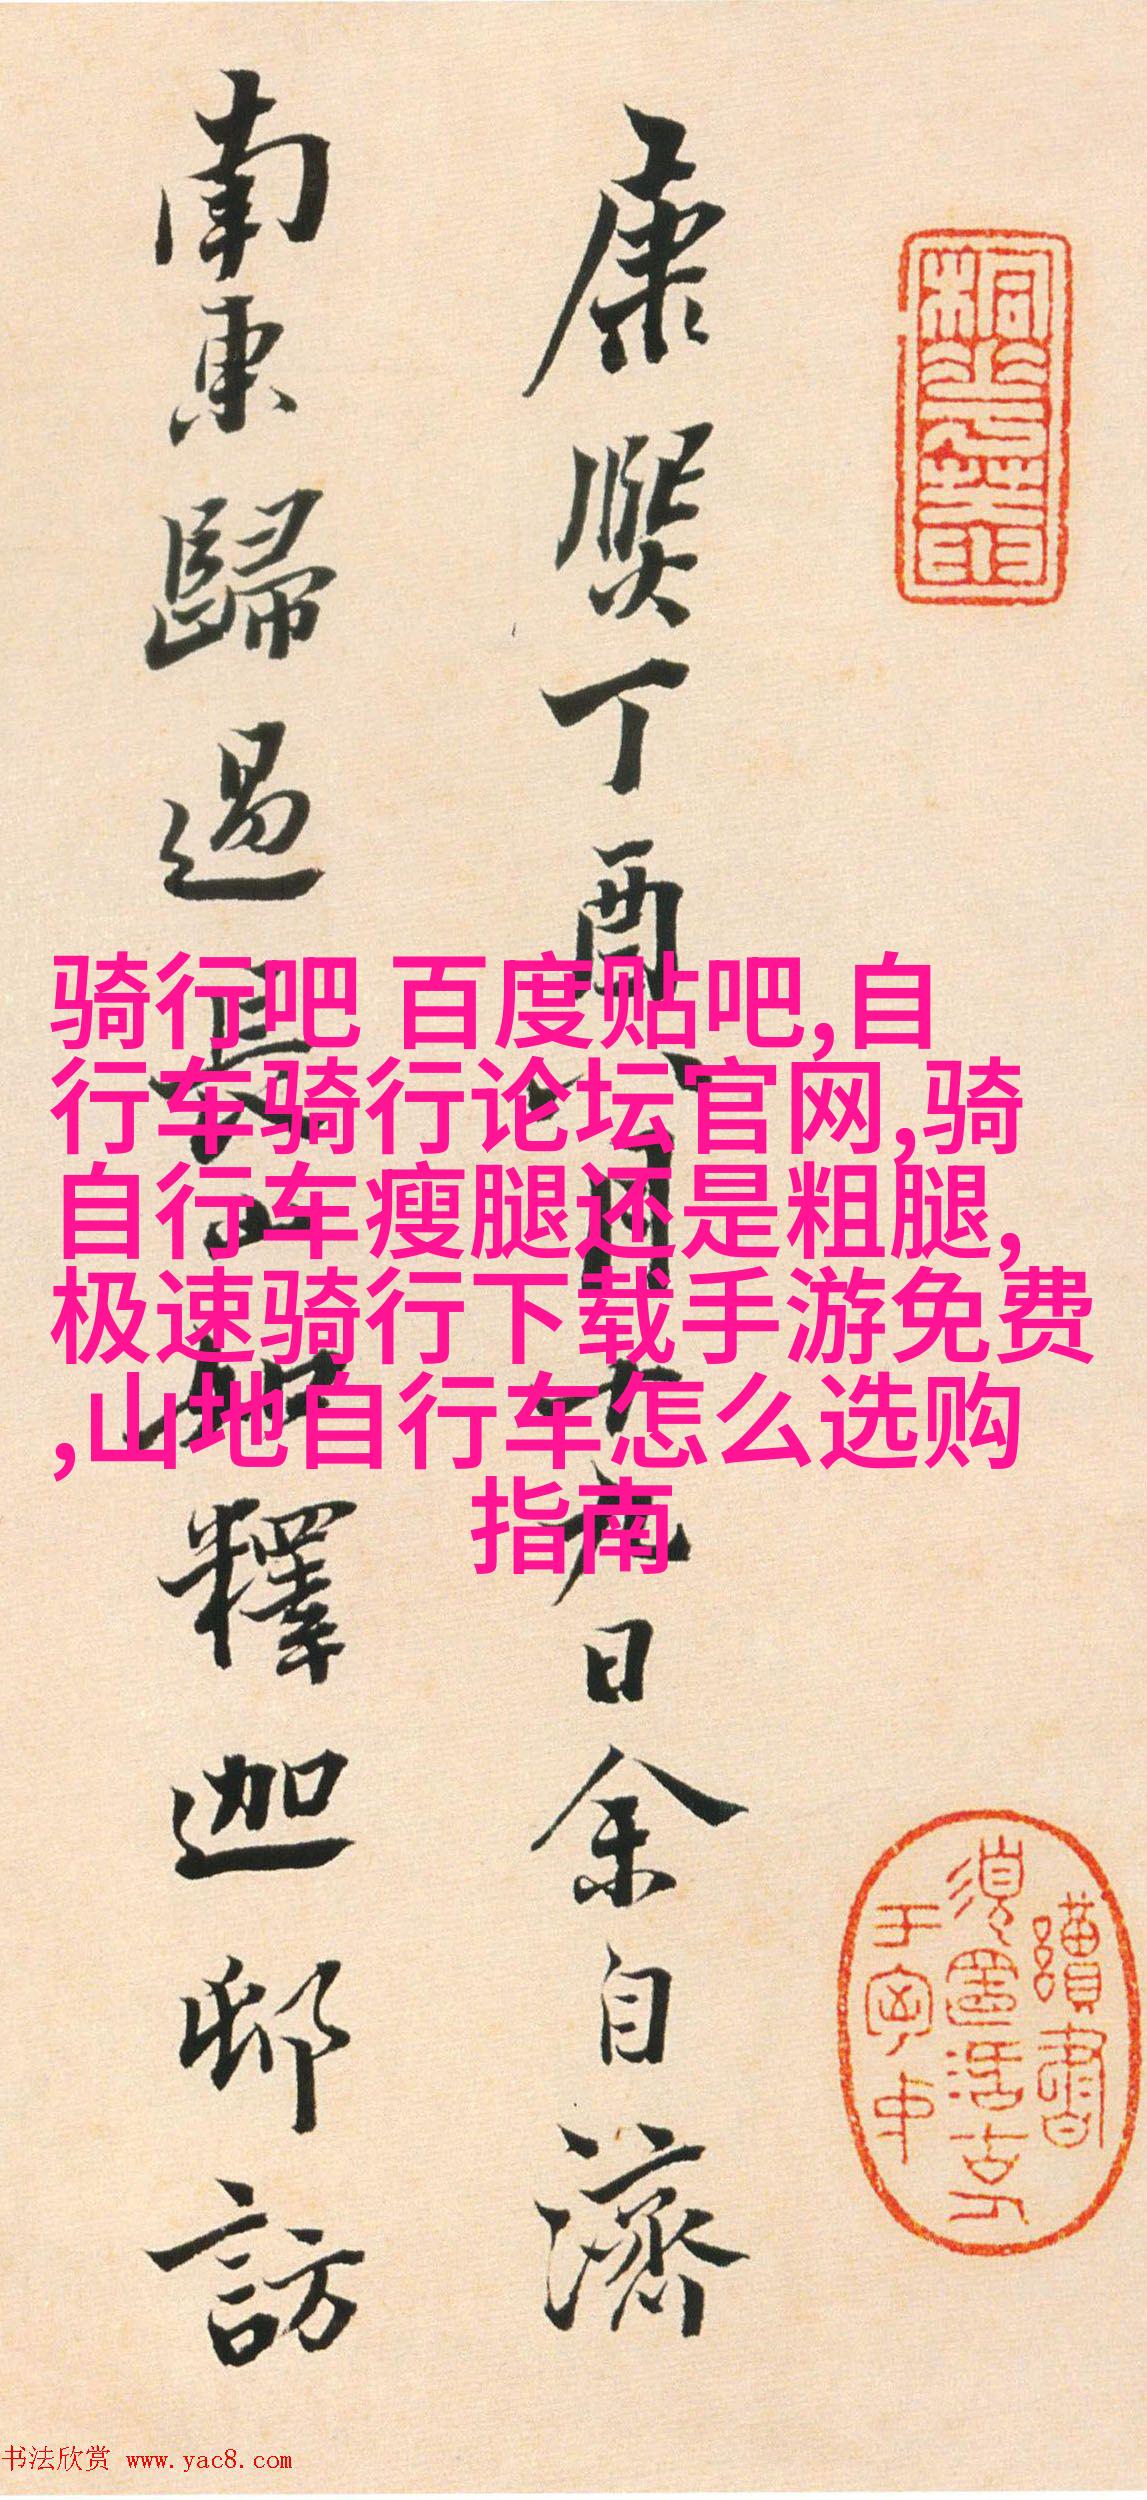 康熙丁酉八月十九日余自濟
南東歸過長山如釋迦邨訪
骑行吧 百度贴吧,自
行车骑行论坛官网,骑
自行车瘦腿还是粗腿,
极速骑行下载手游免费
,山地自行车怎么选购
指南
书法欣赏 www.yac8.com